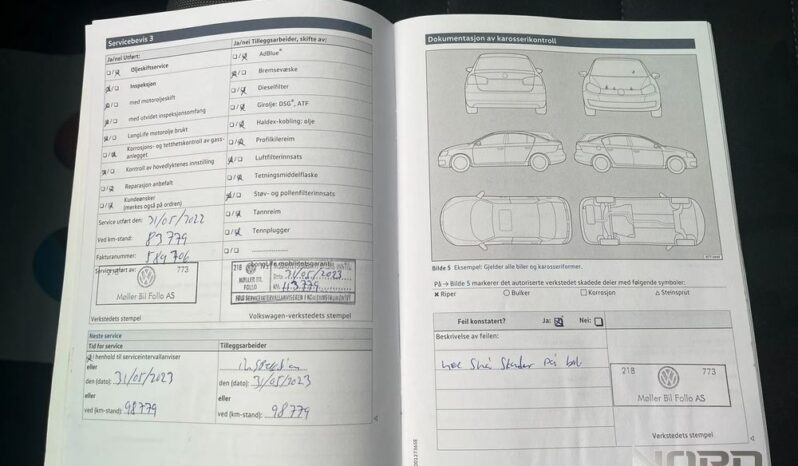 Servicebevis 3
Ja/nei Utført:
Oljeskiftservice
Inspeksjon
med motoroljeskift
med utvidet inspeksjonsomfang
LongLife motorolje brukt
Korrosjons- og tetthetskontroll av gass-
anlegget
Kontroll av hovedlyktenes innstilling
Reparasjon anbefalt
Kundeønsker
(merkes også på ordren)
Service utført den: 31/05/2022
Ved km-stand: 83779
Fakturanummer: 589706
Service utført av:
773
Møller Bil Follo AS
Verkstedets stempel
Ja/nei Tilleggsarbeider, skifte av:
AdBlue®
Bremsevæske
Dieselfilter
Girolje: DSG®, ATF
Haldex-kobling: olje
Profilkilereim
Luftfilterinnsats
Tetningsmiddelflaske
Støv- og pollenfilterinnsats
Tannreim
Tennplugger
LongLife mobilitetsgaranti
21B
MØLLER BIL
FOLLO
31/05/2023
Volkswagen-verkstedets stempel
Neste service
Tid for service
I henhold til serviceintervallanviser
eller
den (dato): 31/05/2023
eller
ved (km-stand): 98779
Tilleggsarbeider
Inspeksjon
den (dato): 31/05/2023
eller
ved (km-stand): 98779
Dokumentasjon av karosserikontroll
Bilde 5 Eksempel: Gjelder alle biler og karosseriformer.
På → Bilde 5 markerer det autoriserte verkstedet skadede deler med følgende symboler:
✕ Riper ○ Bulker □ Korrosjon △ Steinsprut
Feil konstatert? Ja: Nei:
Beskrivelse av feilen:
noe små skader på bil
21B 773
Møller Bil Follo AS
Verkstedets stempel
NORD